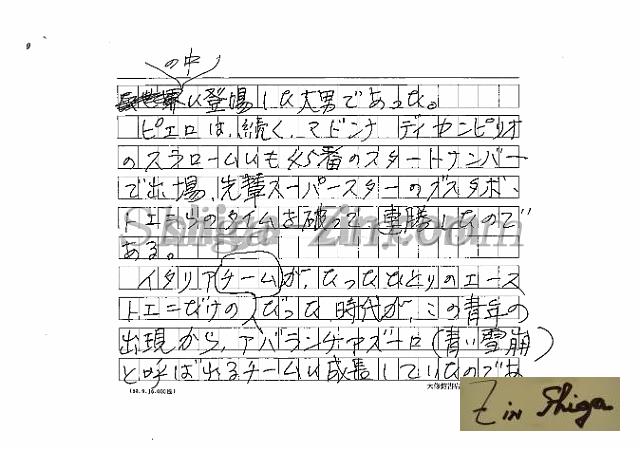 の中
に登場した大男であった。
ピエロは、続く、マドンナ ディ カンピリオ
のスラロームにも、45番のスタートナンバー
で出場、先輩スーパースターのグスタボ・
トエニらのタイムを破って、連勝したので
ある。
イタリアチームが、たったひとりのエース
トエニだけのチームだった時代が、この青年の
出現から、アバランチアズーロ(青い雪崩)
と呼ばれるチームに成長していたのであ
Shiga Zin.com
Z in Shiga